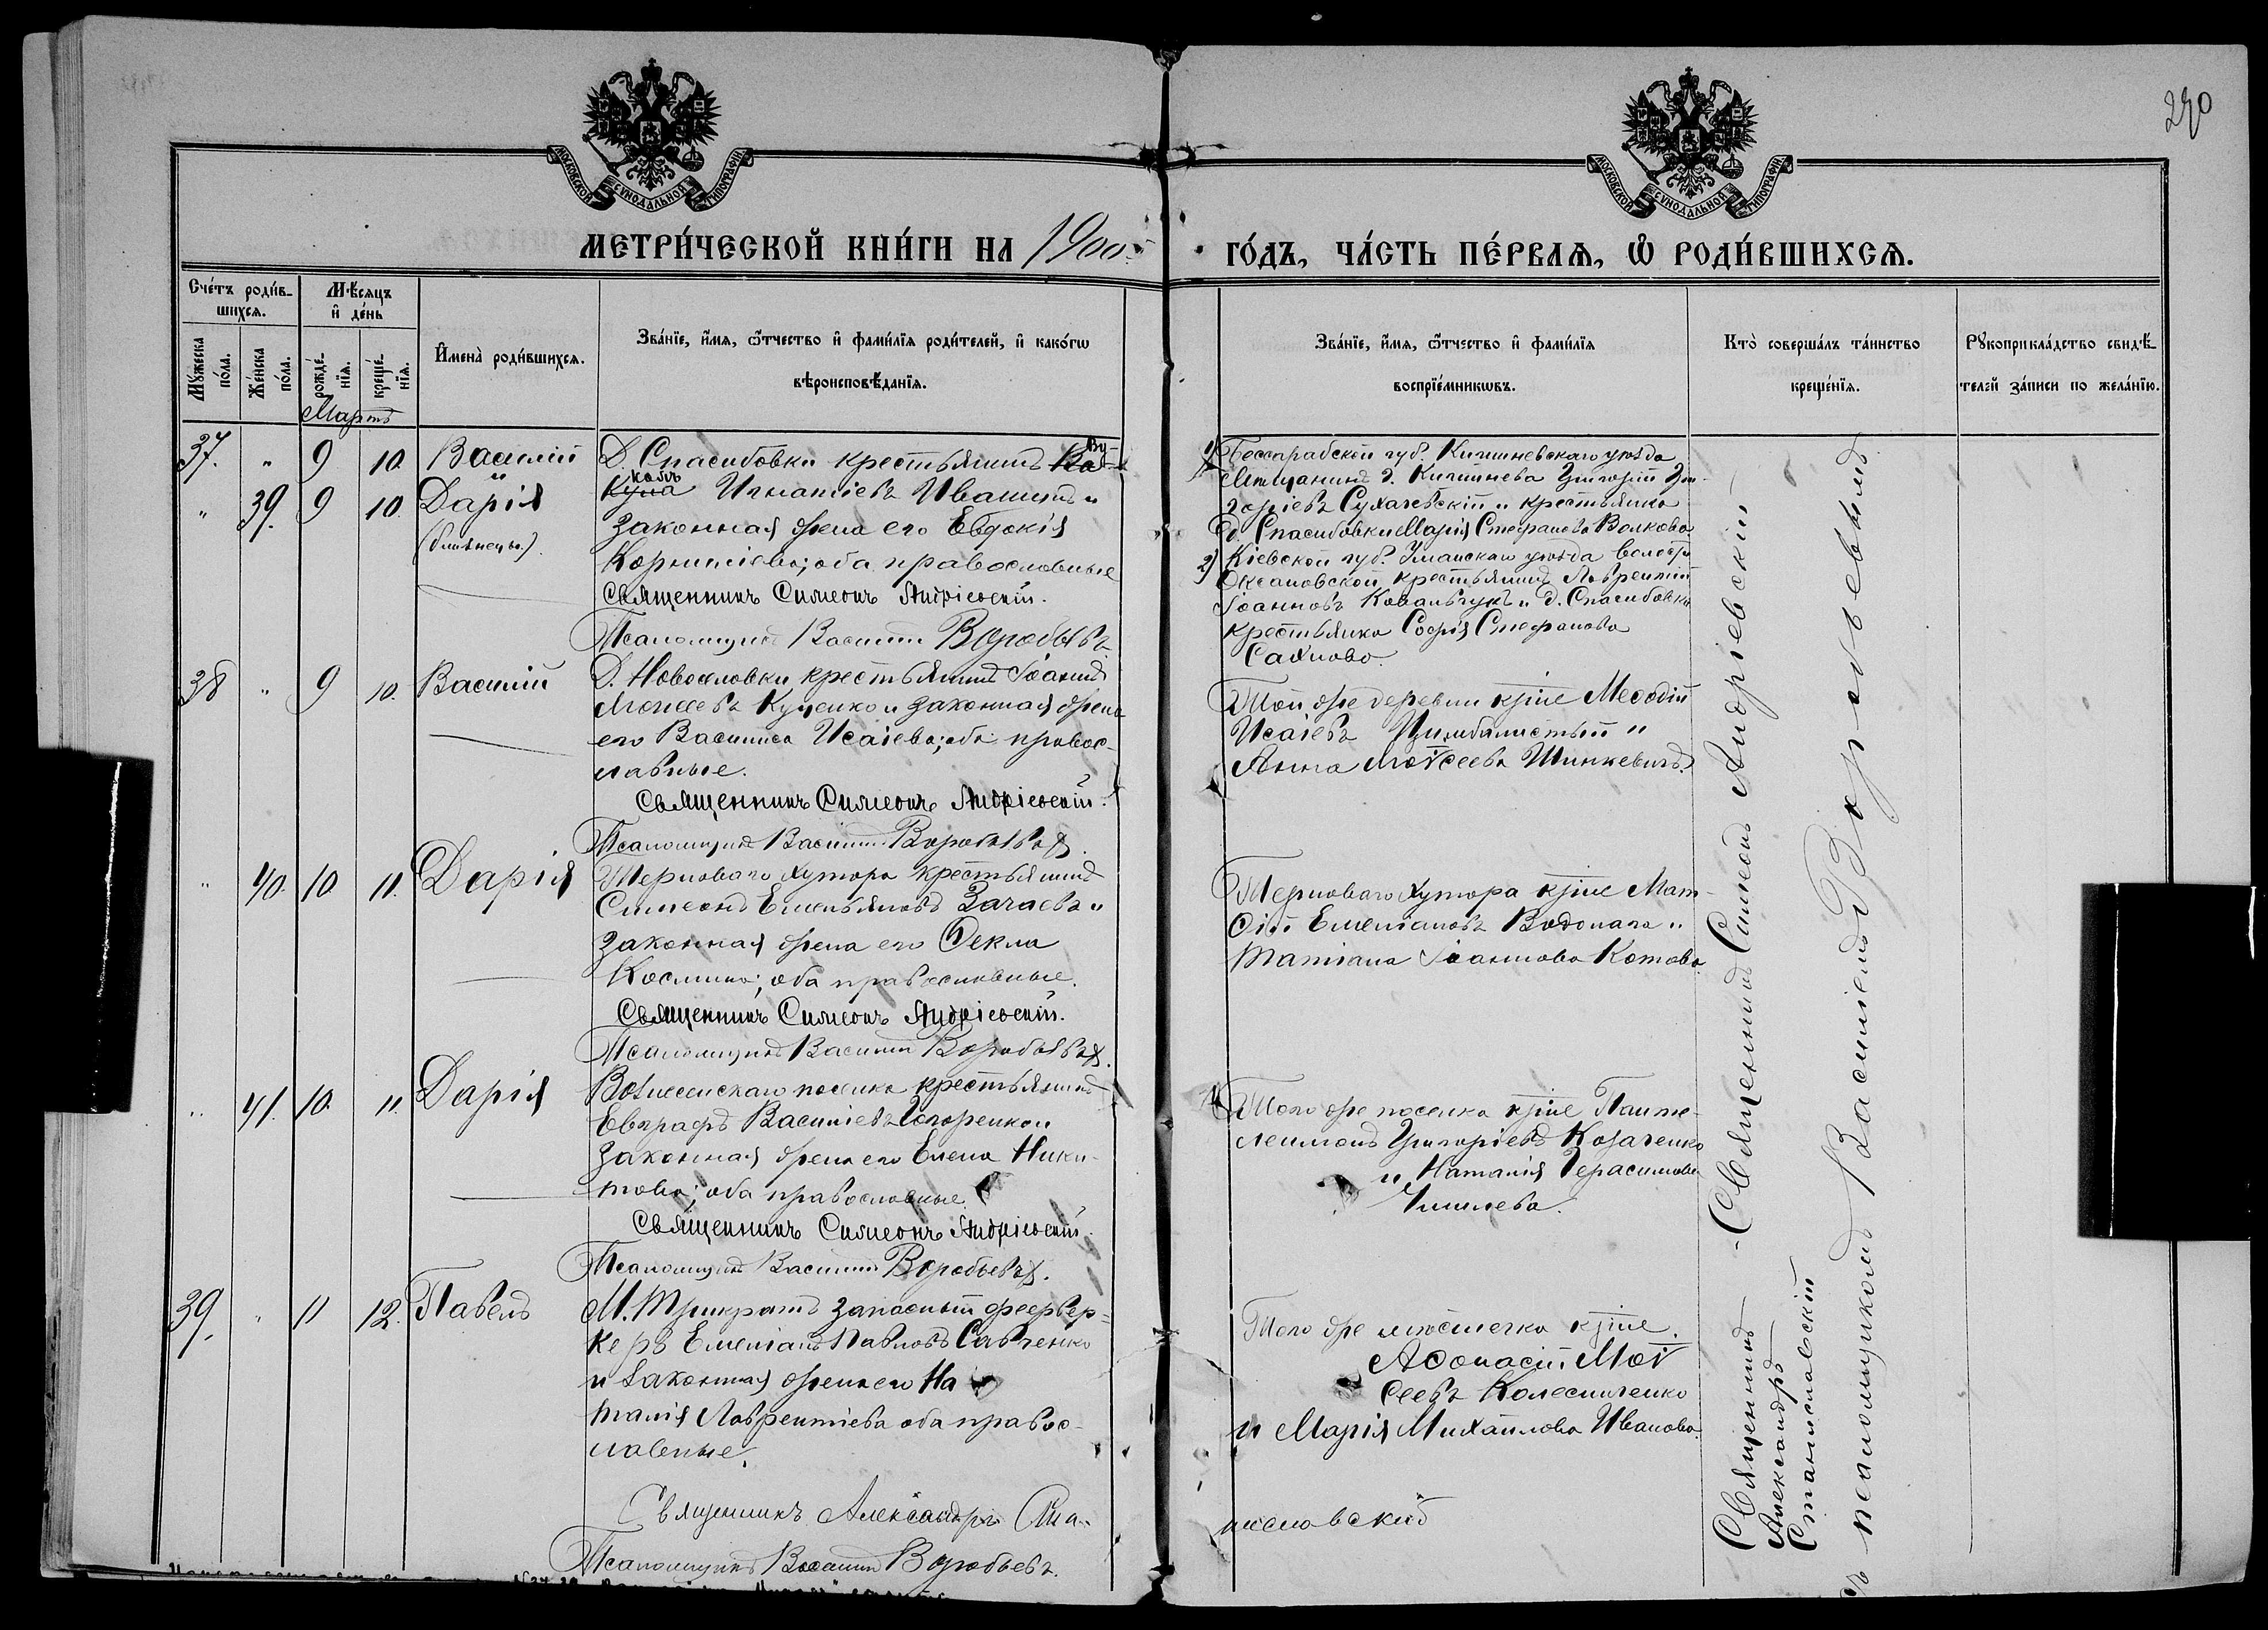 270
МОСКОВСКОЙ СУНОДАЛЬНОЙ ТИПОГРАФІИ
МОСКОВСКОЙ СУНОДАЛЬНОЙ ТИПОГРАФІИ
МЕТРИ́ЧЕСКОЙ КНИ́ГИ НА 1900
ГО́ДЪ, ЧА́СТЬ ПЕ́РВАѦ, Ѡ҆ РОДИ́ВШИХСѦ.
Сче́тъ роди́в-
шихсѧ.
Мꙋ́жеска
по́ла.
Же́нска
по́ла.
Мѣ́сѧцъ
и҆ де́нь
рожде́-
нїѧ.
креще́-
нїѧ.
Мартъ
И҆мена̀ роди́вшихсѧ.
Зва́нїе, и҆́мѧ, ѻ҆́тчество и҆ фами́лїѧ роди́телей, и҆ како́гѡ
вѣроисповѣ́данїѧ.
Зва́нїе, и҆́мѧ, ѻ҆́тчество и҆ фами́лїѧ
воспрїе́мникѡвъ.
Кто̀ соверша́лъ та́инство
креще́нїѧ.
Рꙋкоприкла́дство свидѣ́-
телей за́писи по жела́нїю.
37. " 9 10. Василій
и
" 39. 9 10. Дарія
(близнецы).
Д. Спасибовки крестьянинъ
Игнатіевъ Ивашинъ и
законная жена его Евдокія
Корниліева; оба православные
Священникъ Симеонъ Андріевскій.
Псаломщикъ Василій Воробьевъ
1) Бессарабской губ. Кишиневскаго уѣзда
мѣщанинъ г. Кишинева Григорій Гри-
горіевъ Сухачевскій и крестьянка
д. Спасибовки Марія Стефанова Волкова
2) Кіевской губ. Уманскаго уѣзда волости
Оксановской крестьянинъ Лаврентій
Іоанновъ Ковальчукъ и д. Спасибовки
крестьянка Софія Стефанова
Сахново.
38 " 9 10. Василій
Д. Новоселовки крестьянинъ Іоаннъ
Моисеевъ Куценко и законная жена
его Василиса Исаіева; оба правос-
лавные.
Священникъ Симеонъ Андріевскій.
Псаломщикъ Василій Воробьевъ
Той же деревни кр҃не Меѳодій
Исаіевъ Цимбалистый и
Анна Моѵсеева Шинкевичъ
" 40. 10 11. Дарія
Терноваго Хутора крестьянинъ
Симеонъ Емельяновъ Зачаевъ и
законная жена его Ѳекла
Космина; оба православные.
Священникъ Симеонъ Андріевскій.
Псаломщикъ Василій Воробьевъ
Терноваго Хутора кр҃не Мат-
ѳій Емеліановъ Водолага и
Татіана Іоаннова Котова
" 41. 10. 11. Дарія
Вознесенскаго поселка крестьянинъ
Евграфъ Василіевъ Гогоренко и
законная жена его Елена Ники-
това; оба православные.
Священникъ Симеонъ Андріевскій.
Псаломщикъ Василій Воробьевъ.
Того же поселка кр҃не Панте-
леимонъ Григоріевъ Козаченко
и Наталія Герасимова
39. " 11 12. Павелъ
М. Трикратъ запасный феервер-
керъ Емеліанъ Павловъ Савченко
и законная жена его На
талія Лаврентіева оба правос-
лавные.
Священникъ Александръ Ста-
ниславскій
Псаломщикъ Василій Воробьевъ.
Того же мѣстечка кр҃не
Аѳонасій Моѵ
сеевъ Колесниченко
и Марія Михайлова Иванова.
Священникъ Симеонъ Андріевскій
Священникъ
Александръ
Станиславскій
съ псаломщикомъ Василіемъ Воробьевымъ